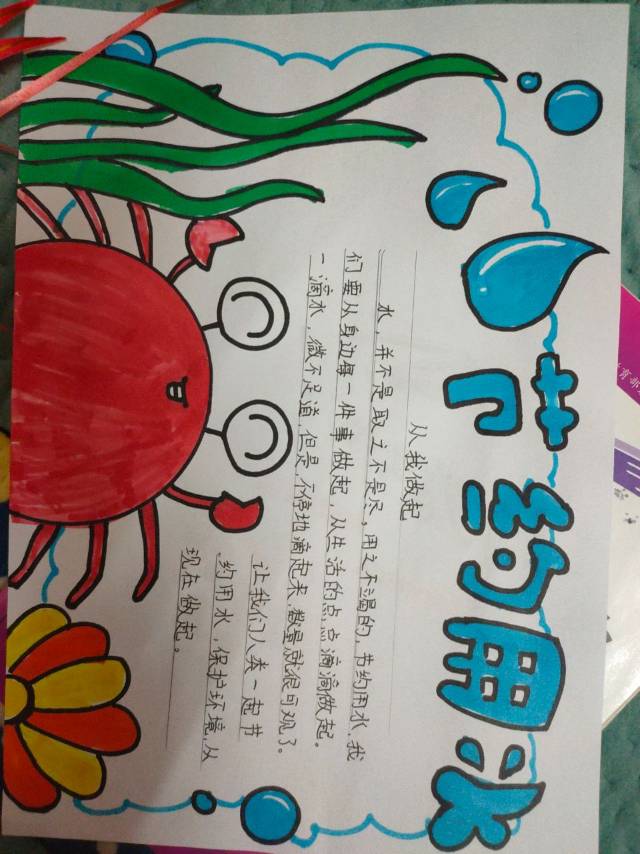 节约用水
从我做起
水，并不是取之不是尽。用之不渴的，节约用水，我
们要从身边每一件事做起，从生活的点点滴滴做起。
一滴水，微不足道，但是，不停地滴起来，数量就很可观了。
让我们人类一起节
约用水，保护环境，从
现在做起。